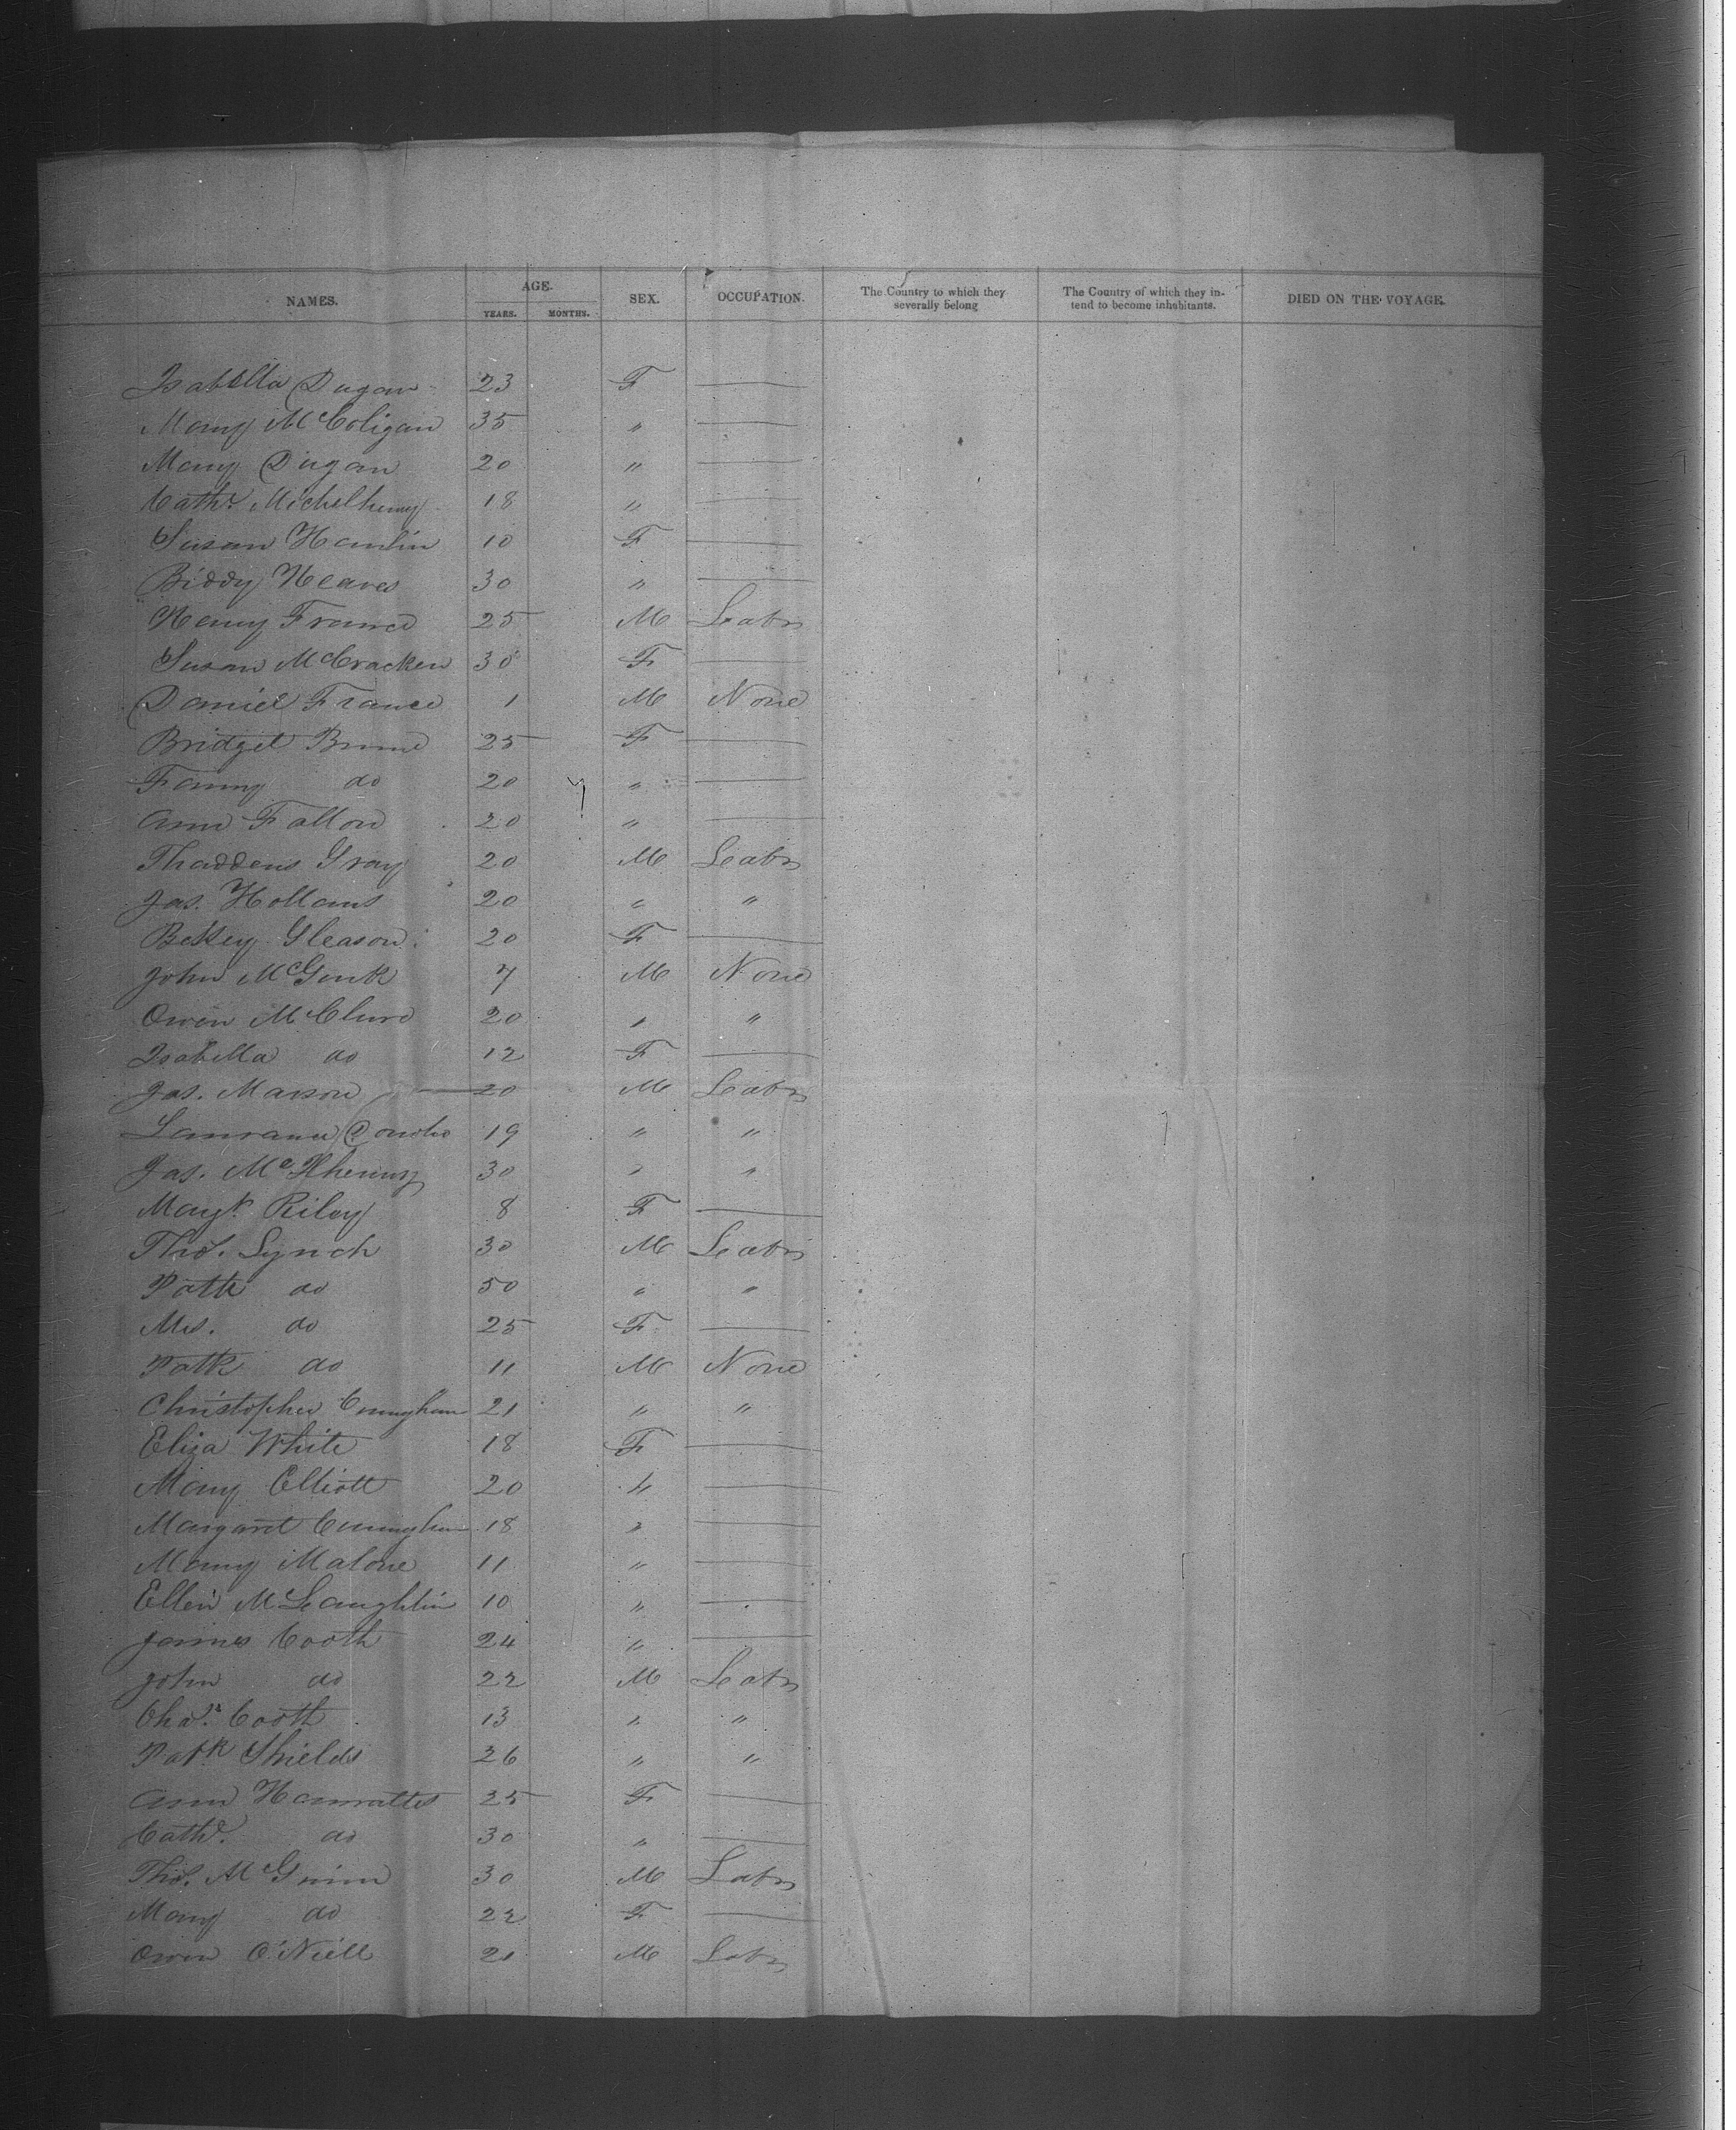 NAMES. AGE. YEARS. MONTHS. SEX. OCCUPATION. The Country to which they severally belong The Country of which they intend to become inhabitants. DIED ON THE VOYAGE.
Isabella Dugan 23 F —
Mary McColigan 35 " —
Mary Dugan 20 " —
Cathe. Michelhenny 18 " —
Susan Hanlin 10 F —
Biddy Heaves 30 " —
Henry France 25 M Labr
Susan McCracken 30 F —
Daniel France 1 M None
Bridget Brune 25 F —
Fanny do 20 " —
Ann Fallon 20 " —
Thaddeus Gray 20 M Labr
Jas. Hollams 20 " "
Betsey Gleason 20 F —
John McGurk 7 M None
Owen McClure 20 " "
Isabella do 12 F —
Jas. Marson 20 M Labr
Lawrance Donoho 19 " "
Jas. McIlhenny 30 " "
Magt. Riley 8 F —
Thos. Lynch 30 M Labr
Patk do 50 " "
Mrs. do 25 F —
Patk do 11 M None
Christopher Cunningham 21 " "
Eliza White 18 F —
Mary Elliott 20 " —
Margaret Cunningham 18 " —
Mary Malone 11 " —
Ellen McLaughlin 10 " —
James Cooth 24 " —
John do 22 M Labr
Chas. Cooth 13 " "
Patk Shields 26 " "
Ann Hanrattes 25 F —
Cathe. do 30 " —
Thos. McGuinn 30 M Labr
Mary do 22 F —
Owen O'Niell 21 M Labr